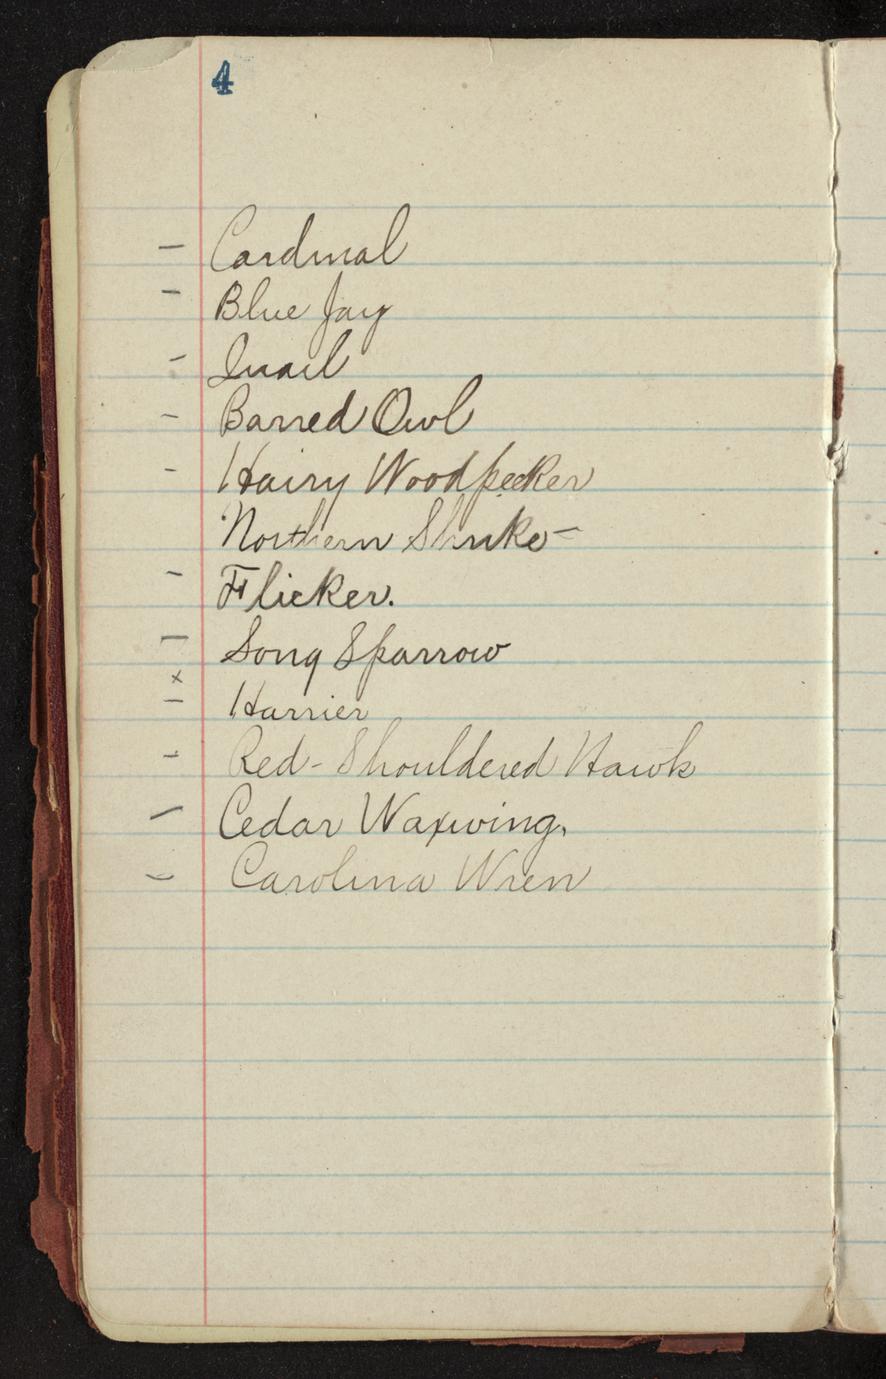 4
- Cardinal
- Blue Jay
- Quail
- Barred Owl
- Hairy Woodpecker
Northern Shrike -
- Flicker.
- Song Sparrow
x
- Harrier
- Red-Shouldered Hawk
- Cedar Waxwing.
- Carolina Wren